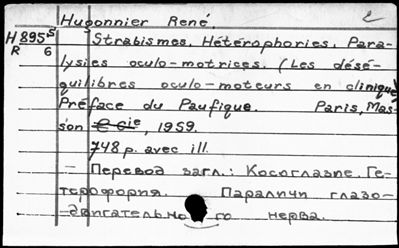 Hugonnier René.
H 895 5 Strabismes. Hétérophories. Para-
R 6 lysies oculo-motrices. (Les désé-
quilibres oculo-moteurs en clinique)
Préface du Paufique. Paris, Mas-
son & Cie, 1959.
748 p. avec ill.
— Перевод загл.: Косоглазие. Ге-
терофория. Параличи глазо-
двигательного нерва.